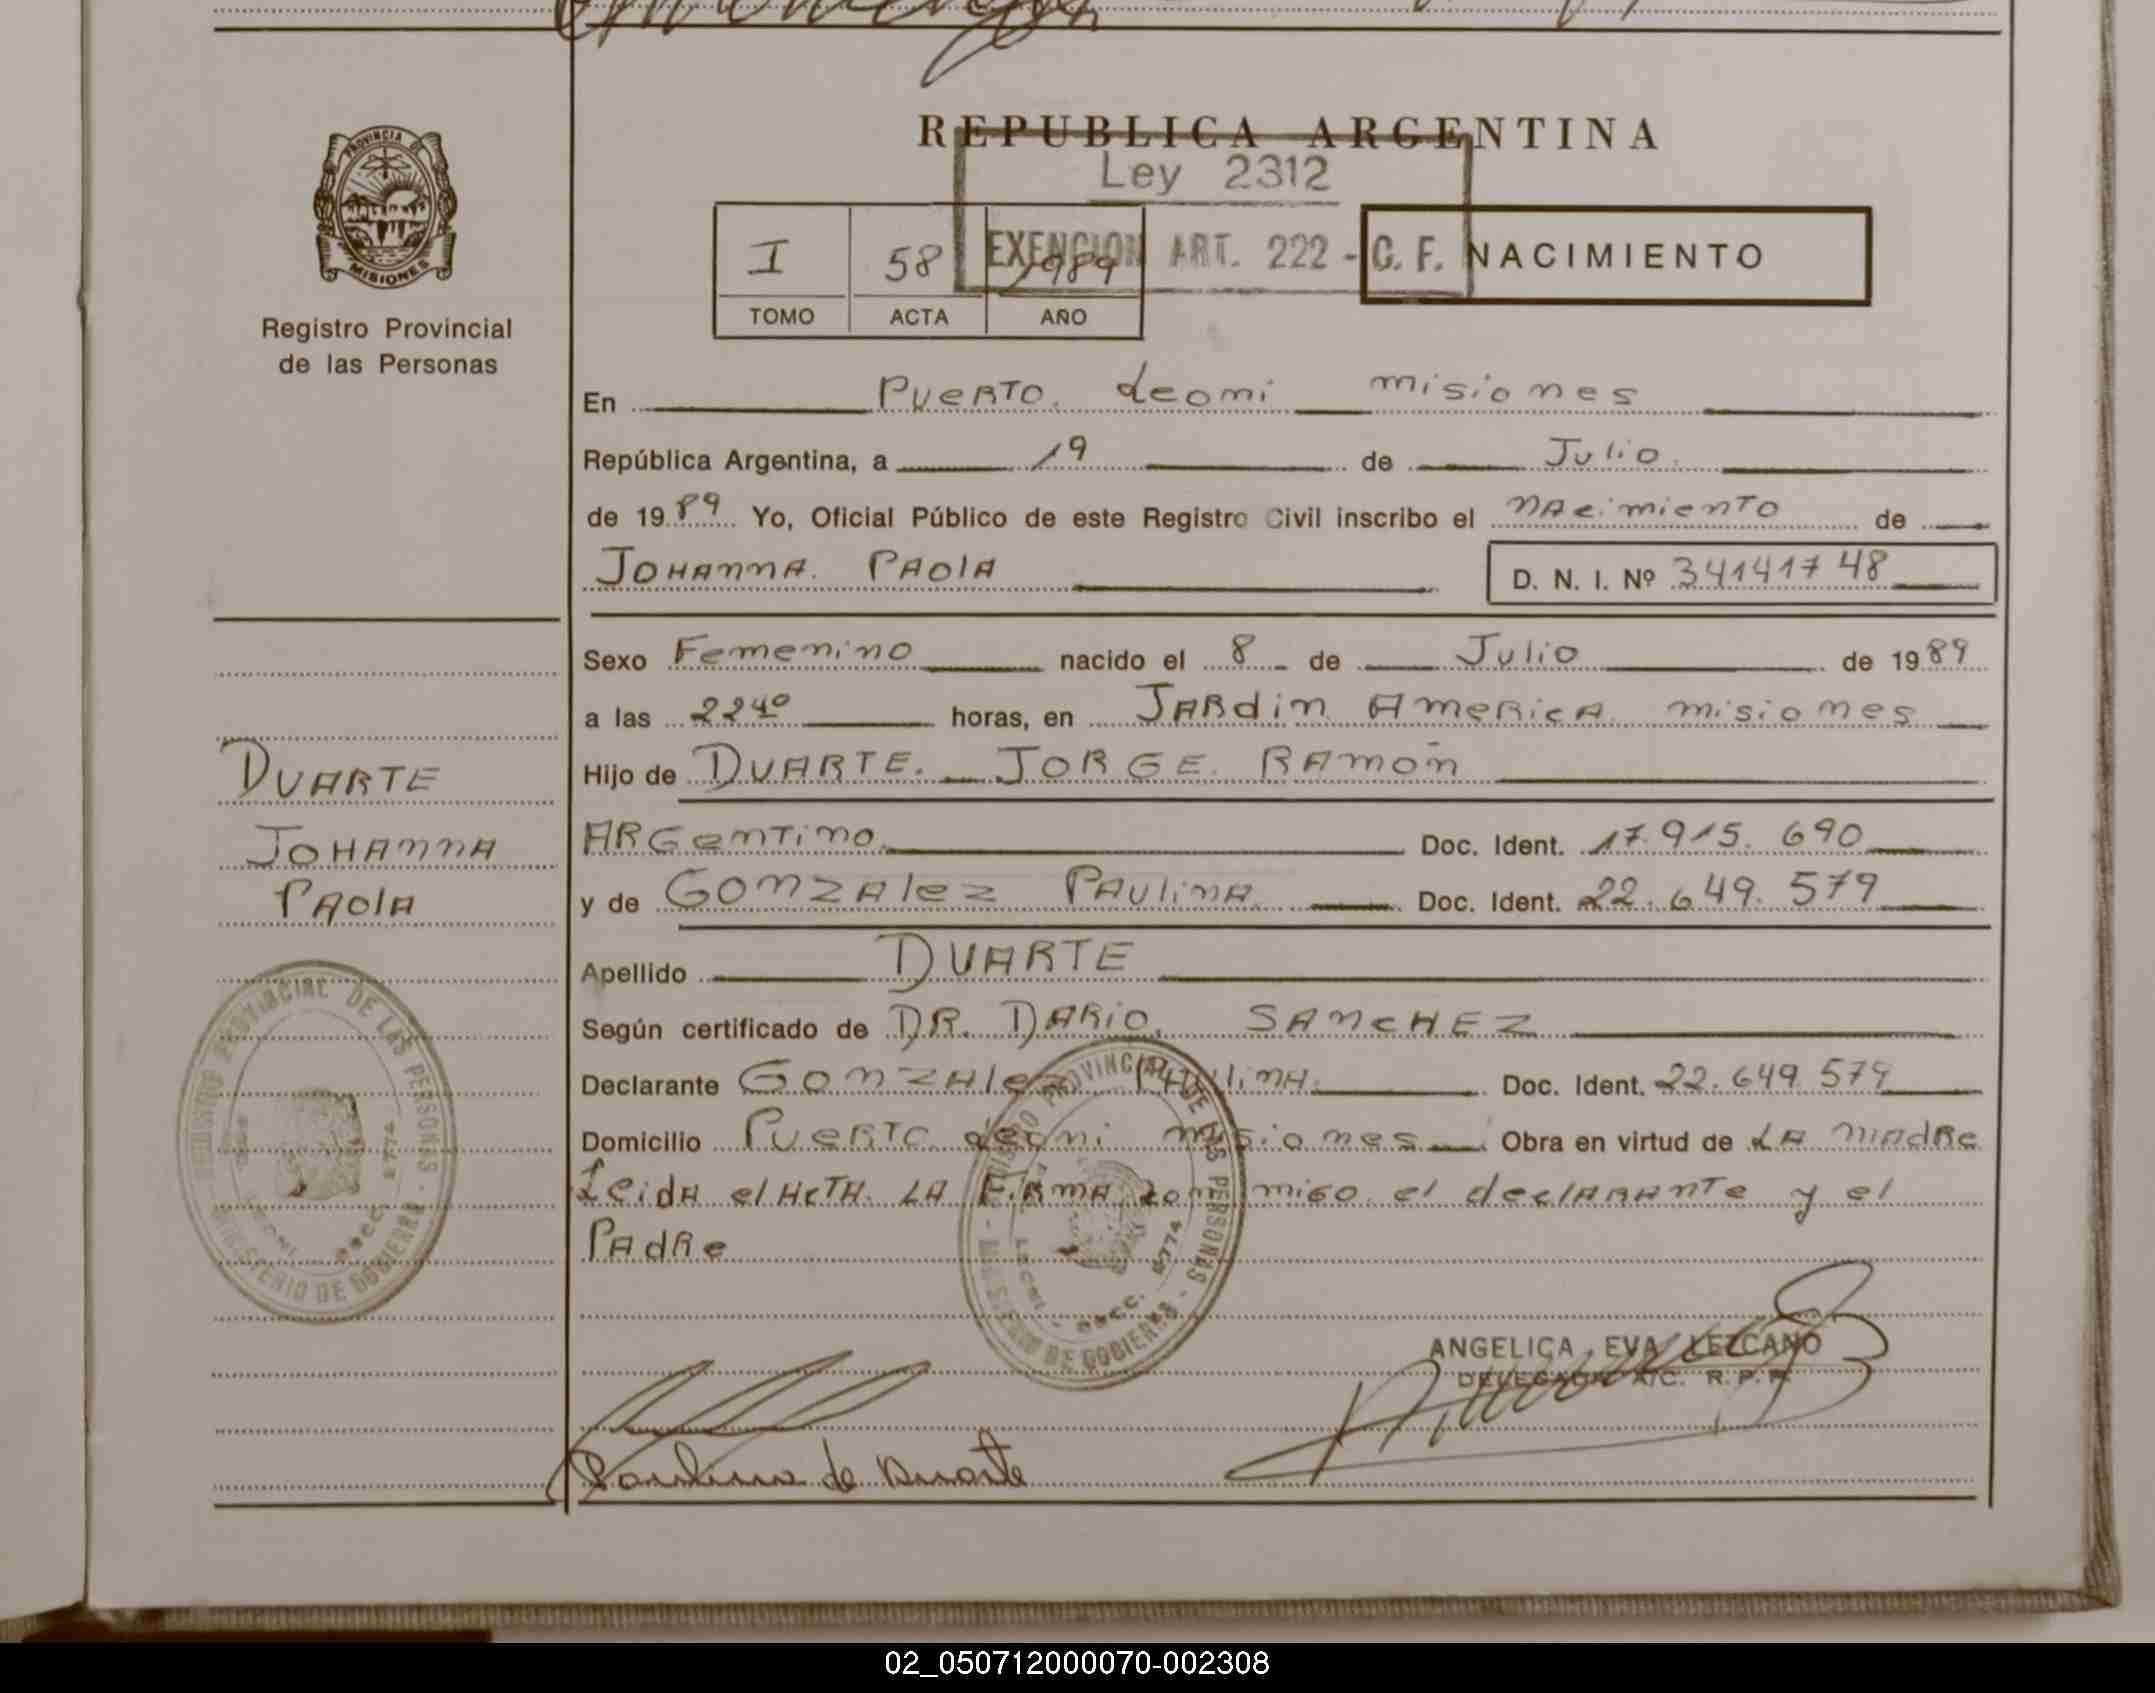 PROVINCIA DE
MISIONES
Registro Provincial
de las Personas
REPUBLICA ARGENTINA
Ley 2312
EXENCION ART. 222 - C. F.
NACIMIENTO
I 58 1989
TOMO ACTA AÑO
En Puerto Leoni Misiones
República Argentina, a 19 de Julio
de 1989 Yo, Oficial Público de este Registro Civil inscribo el nacimiento de
Johanna Paola D. N. I. Nº 34141748
Sexo Femenino nacido el 8 de Julio de 1989
a las 22 40 horas, en Jardin America Misiones
Hijo de Duarte Jorge Ramón
Argentino Doc. Ident. 17.915.690
y de Gonzalez Paulina Doc. Ident. 22.649.579
Apellido Duarte
Según certificado de Dr. Dario Sanchez
Declarante Gonzalez Paulina Doc. Ident. 22.649.579
Domicilio Puerto Leoni Misiones Obra en virtud de La Madre
Leida el Acta La Firma conmigo el declarante y el
Padre
Duarte
Johanna
Paola
REGISTRO PROVINCIAL DE LAS PERSONAS
MINISTERIO DE GOBIERNO
REGISTRO PROVINCIAL DE LAS PERSONAS
MINISTERIO DE GOBIERNO
ANGELICA EVA LEZCANO
DELEGADA A/C. R.P.P.
Paulina de Duarte
02_050712000070-002308